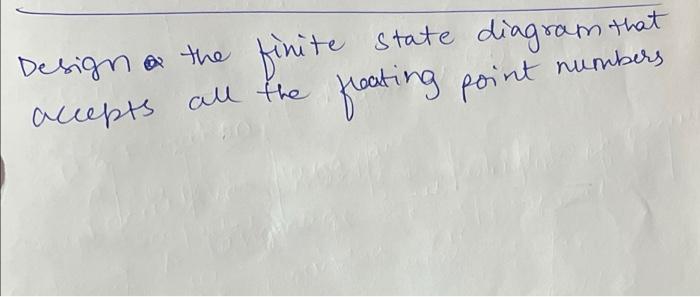 Design the finite state diagram that
accepts all the floating point numbers